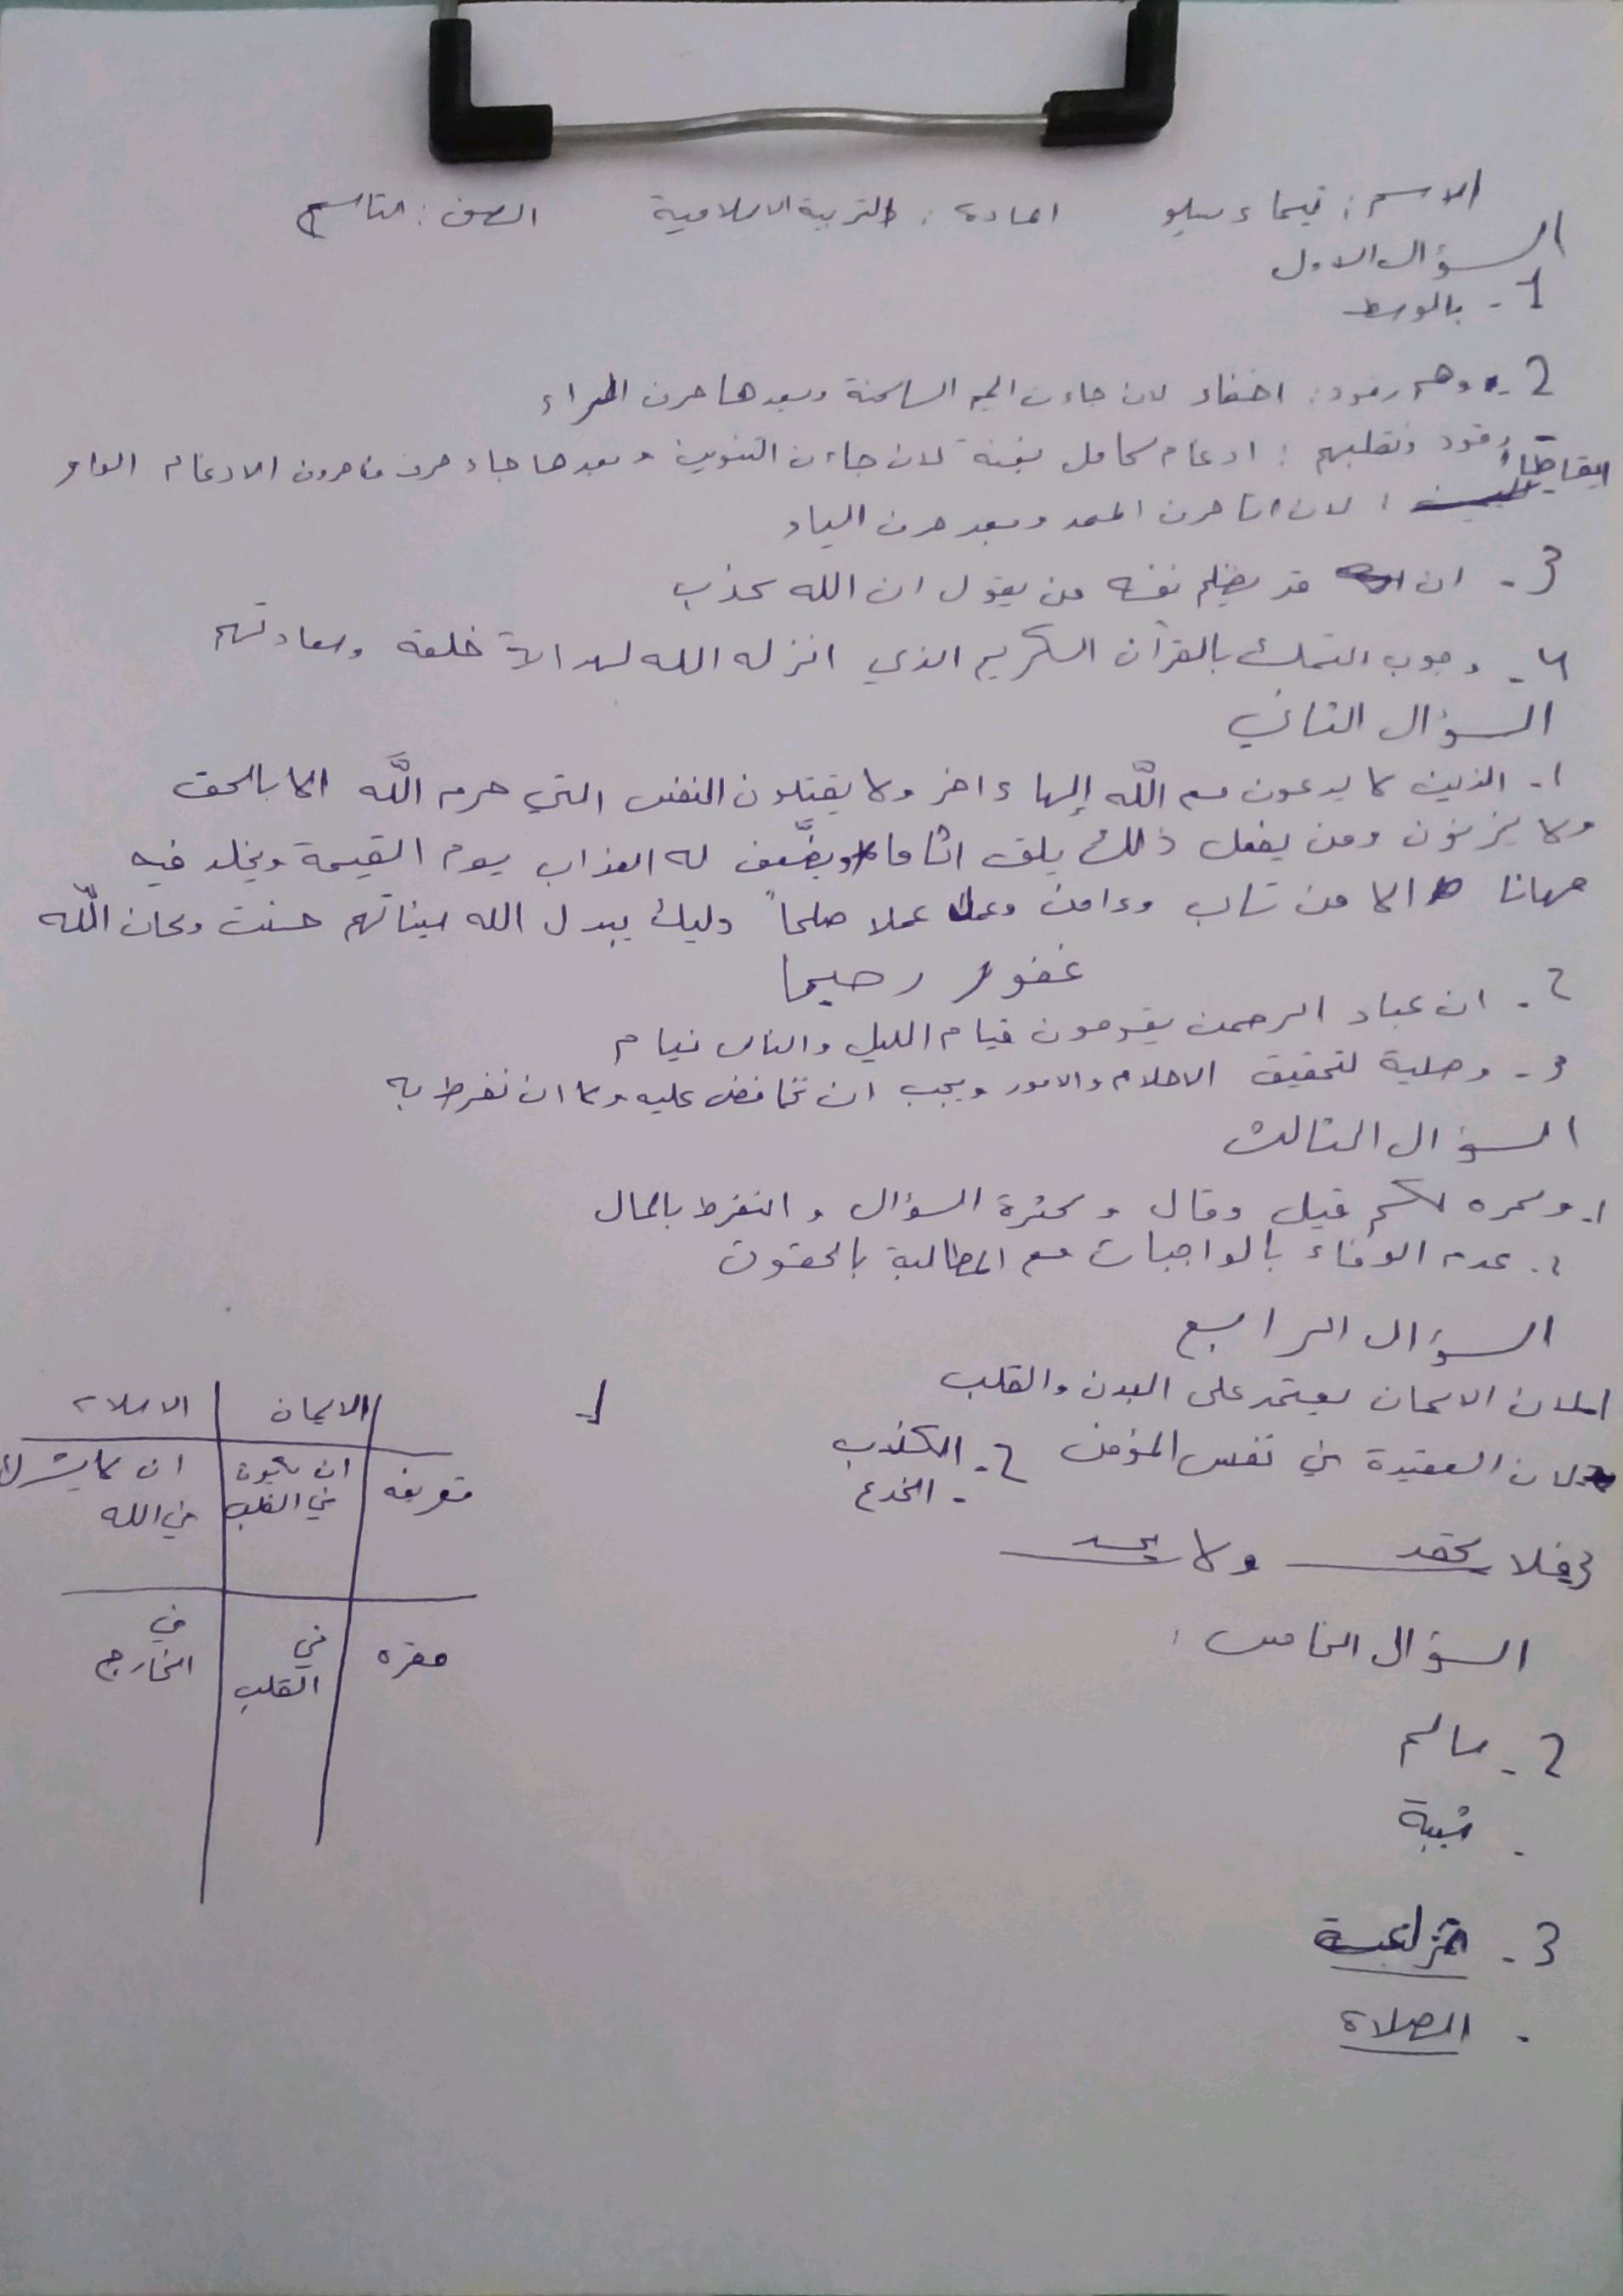 الاسم : تيماء سيلو المادة : التربية الاسلامية الصف : التاسع
السؤال الاول
1 - بالوسط
2 - وهم رقود : اخفاء لان جاءت الميم الساكنة وبعدها حرف الراء
ايقاظاً رقود ونقلبهم : ادغام كامل بغنة لان جاءت التنوين وبعدها جاء حرف من حروف الادغام الواو
: لان اتا حرف المد وبعد حرف الياء
3 - ان قد يظلم نفسه من يقول ان الله كذب
4 - وجوب التمسك بالقرآن الكريم الذي انزله الله لهداية خلقه وسعادتهم
السؤال الثاني
1 - الذين لا يدعون مع اللّه إلها ءاخر ولا يقتلون النفس التي حرم اللّه الا بالحق
ولا يزنون ومن يفعل ذلك يلق اثاما ويضعف له العذاب يوم القيمة ويخلد فيه
مهانا الا من تاب وءامن وعمل عملا صلحاً وليك يبدل الله سيئاتهم حسنت وكان اللّه
غفور رحيما
2 - ان عباد الرحمن يقومون قيام الليل والناس نيام
3 - وصلية لتحقيق الاحلام والامور ويجب ان نحافض عليه ولا ان نفرط به
السؤال الثالث
1 - وكره لكم قيل وقال وكثرة السؤال و التفرط بالمال
2 - عدم الوفاء بالواجبات مع المطالبة بالحقوق
السؤال الرابع
1 لان الايمان يعتمد على البدن والقلب
لان العقيدة في نفس المؤمن 2 - الكذب
- الخدع
3 فلا يحقد ولا يحسد
1
الايمان الاسلام
تعريفه ان يكون في القلب ان لا يشرك في الله
مقره في القلب في الخارج
السؤال الخامس :
2 - سالم
- شيبة
3 -
- الصلاة